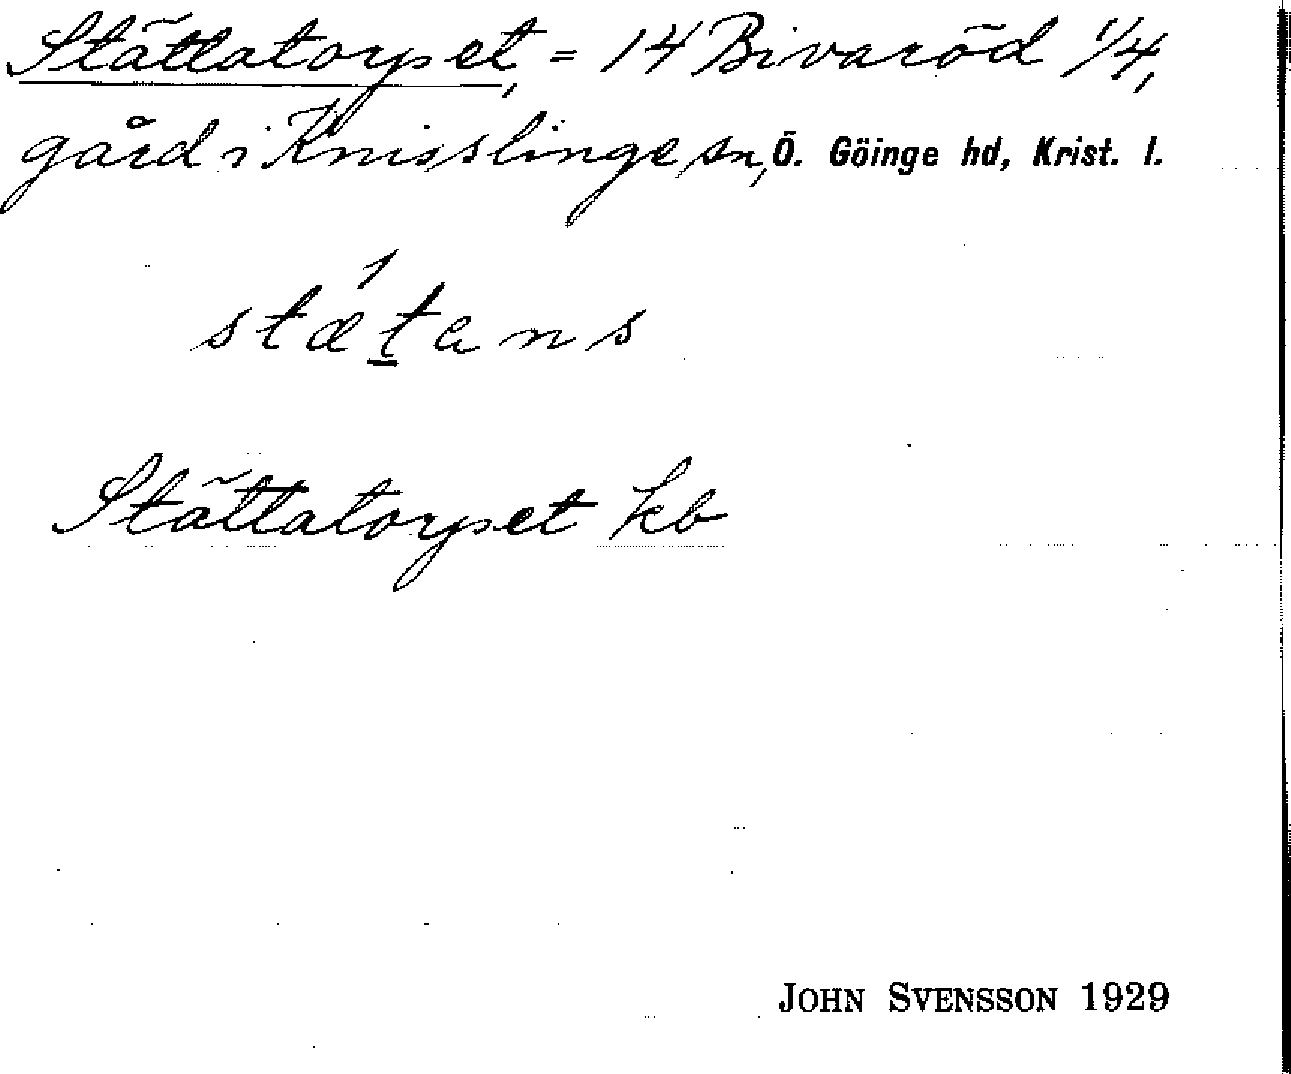 Stättatorpet, = 14 Bivaröd 1/4,
gård i Knisslinge sn, Ö. Göinge hd, Krist. l.
stætans
Stättatorpet kb
JOHN SVENSSON 1929